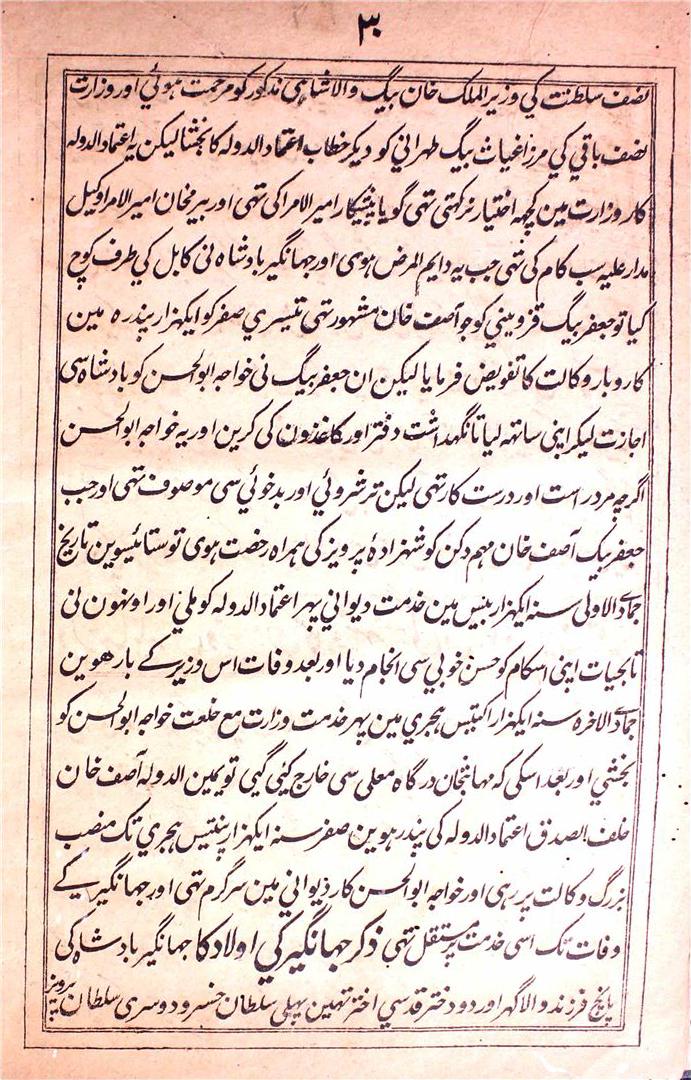 ۳
نصف سلطنت کی وزیر الملک خان بیگ والاشاہی مذکور کو مرحمت ہوئی اور وزارت
نصف باقی کی مرزا غیاث بیگ طہرانی کو دیکر خطاب اعتماد الدولہ کا بخشا لیکن یہ اعتماد الدولہ
کار وزارت مین کچہہ اختیار نرکہتی تہی گویا پیشکار امیر الامرا کی تہی اور بیرمخان امیر الامرا وکیل
مدار علیہ سب کام کی تہی جب یہ دایم المرض ہوی اور جہانگیر بادشاہ نی کابل کی طرف کوچ
کیا تو جعفر بیگ قزوینی کو جو آصف خان مشہور تہی تیسری صفر کو ایکہزار پندرہ مین
کاروبار وکالت کا تفویض فرمایا لیکن ان جعفر بیگ نی خواجہ ابوالحسن کو بادشاہ سی
اجازت لیکر اپنی ساتہہ لیا تا نگہداشت دفتر اور کاغذون کی کرین اور یہ خواجہ ابوالحسن
اگرچہ مرد راست اور درست کار تہی لیکن ترشروئی اور بدخوئی سی موصوف تہی اور جب
جعفر بیگ آصف خان مہم دکن کو شہزادۂ پرویز کی ہمراہ رخصت ہوی تو ستائیسوین تاریخ
جمادے الاولی سنہ ایکہزار بیس مین خدمت دیوانی پہر اعتماد الدولہ کو ملی اور اونہون نی
تا بحیات اپنی اسکام کو حسن خوبی سی انجام دیا اور بعد وفات اس وزیر کے بارھوین
جمادے الاخرہ سنہ ایکہزار اکتیس ہجری مین پہر خدمت وزارت مع خلعت خواجہ ابوالحسن کو
بخشی اور بعد اسکی کہ مہابتخان درگاہ معلی سی خارج کیئی گیی تو یمین الدولہ آصف خان
خلف الصدق اعتماد الدولہ کی پندرہوین صفر سنہ ایکہزار پنتیس ہجری تک منصب
بزرگ وکالت پر رہی اور خواجہ ابوالحسن کار دیوانی مین سرگرم تہی اور جہانگیر کے
وفات تک اسی خدمت پر مستقل تہی ذکر جہانگیر کی اولاد کا جہانگیر بادشاہ کی
پانچ فرزند والا گہر اور دو دختر قدسی اختر تہین پہلی سلطان خسرو دوسری سلطان پرویز